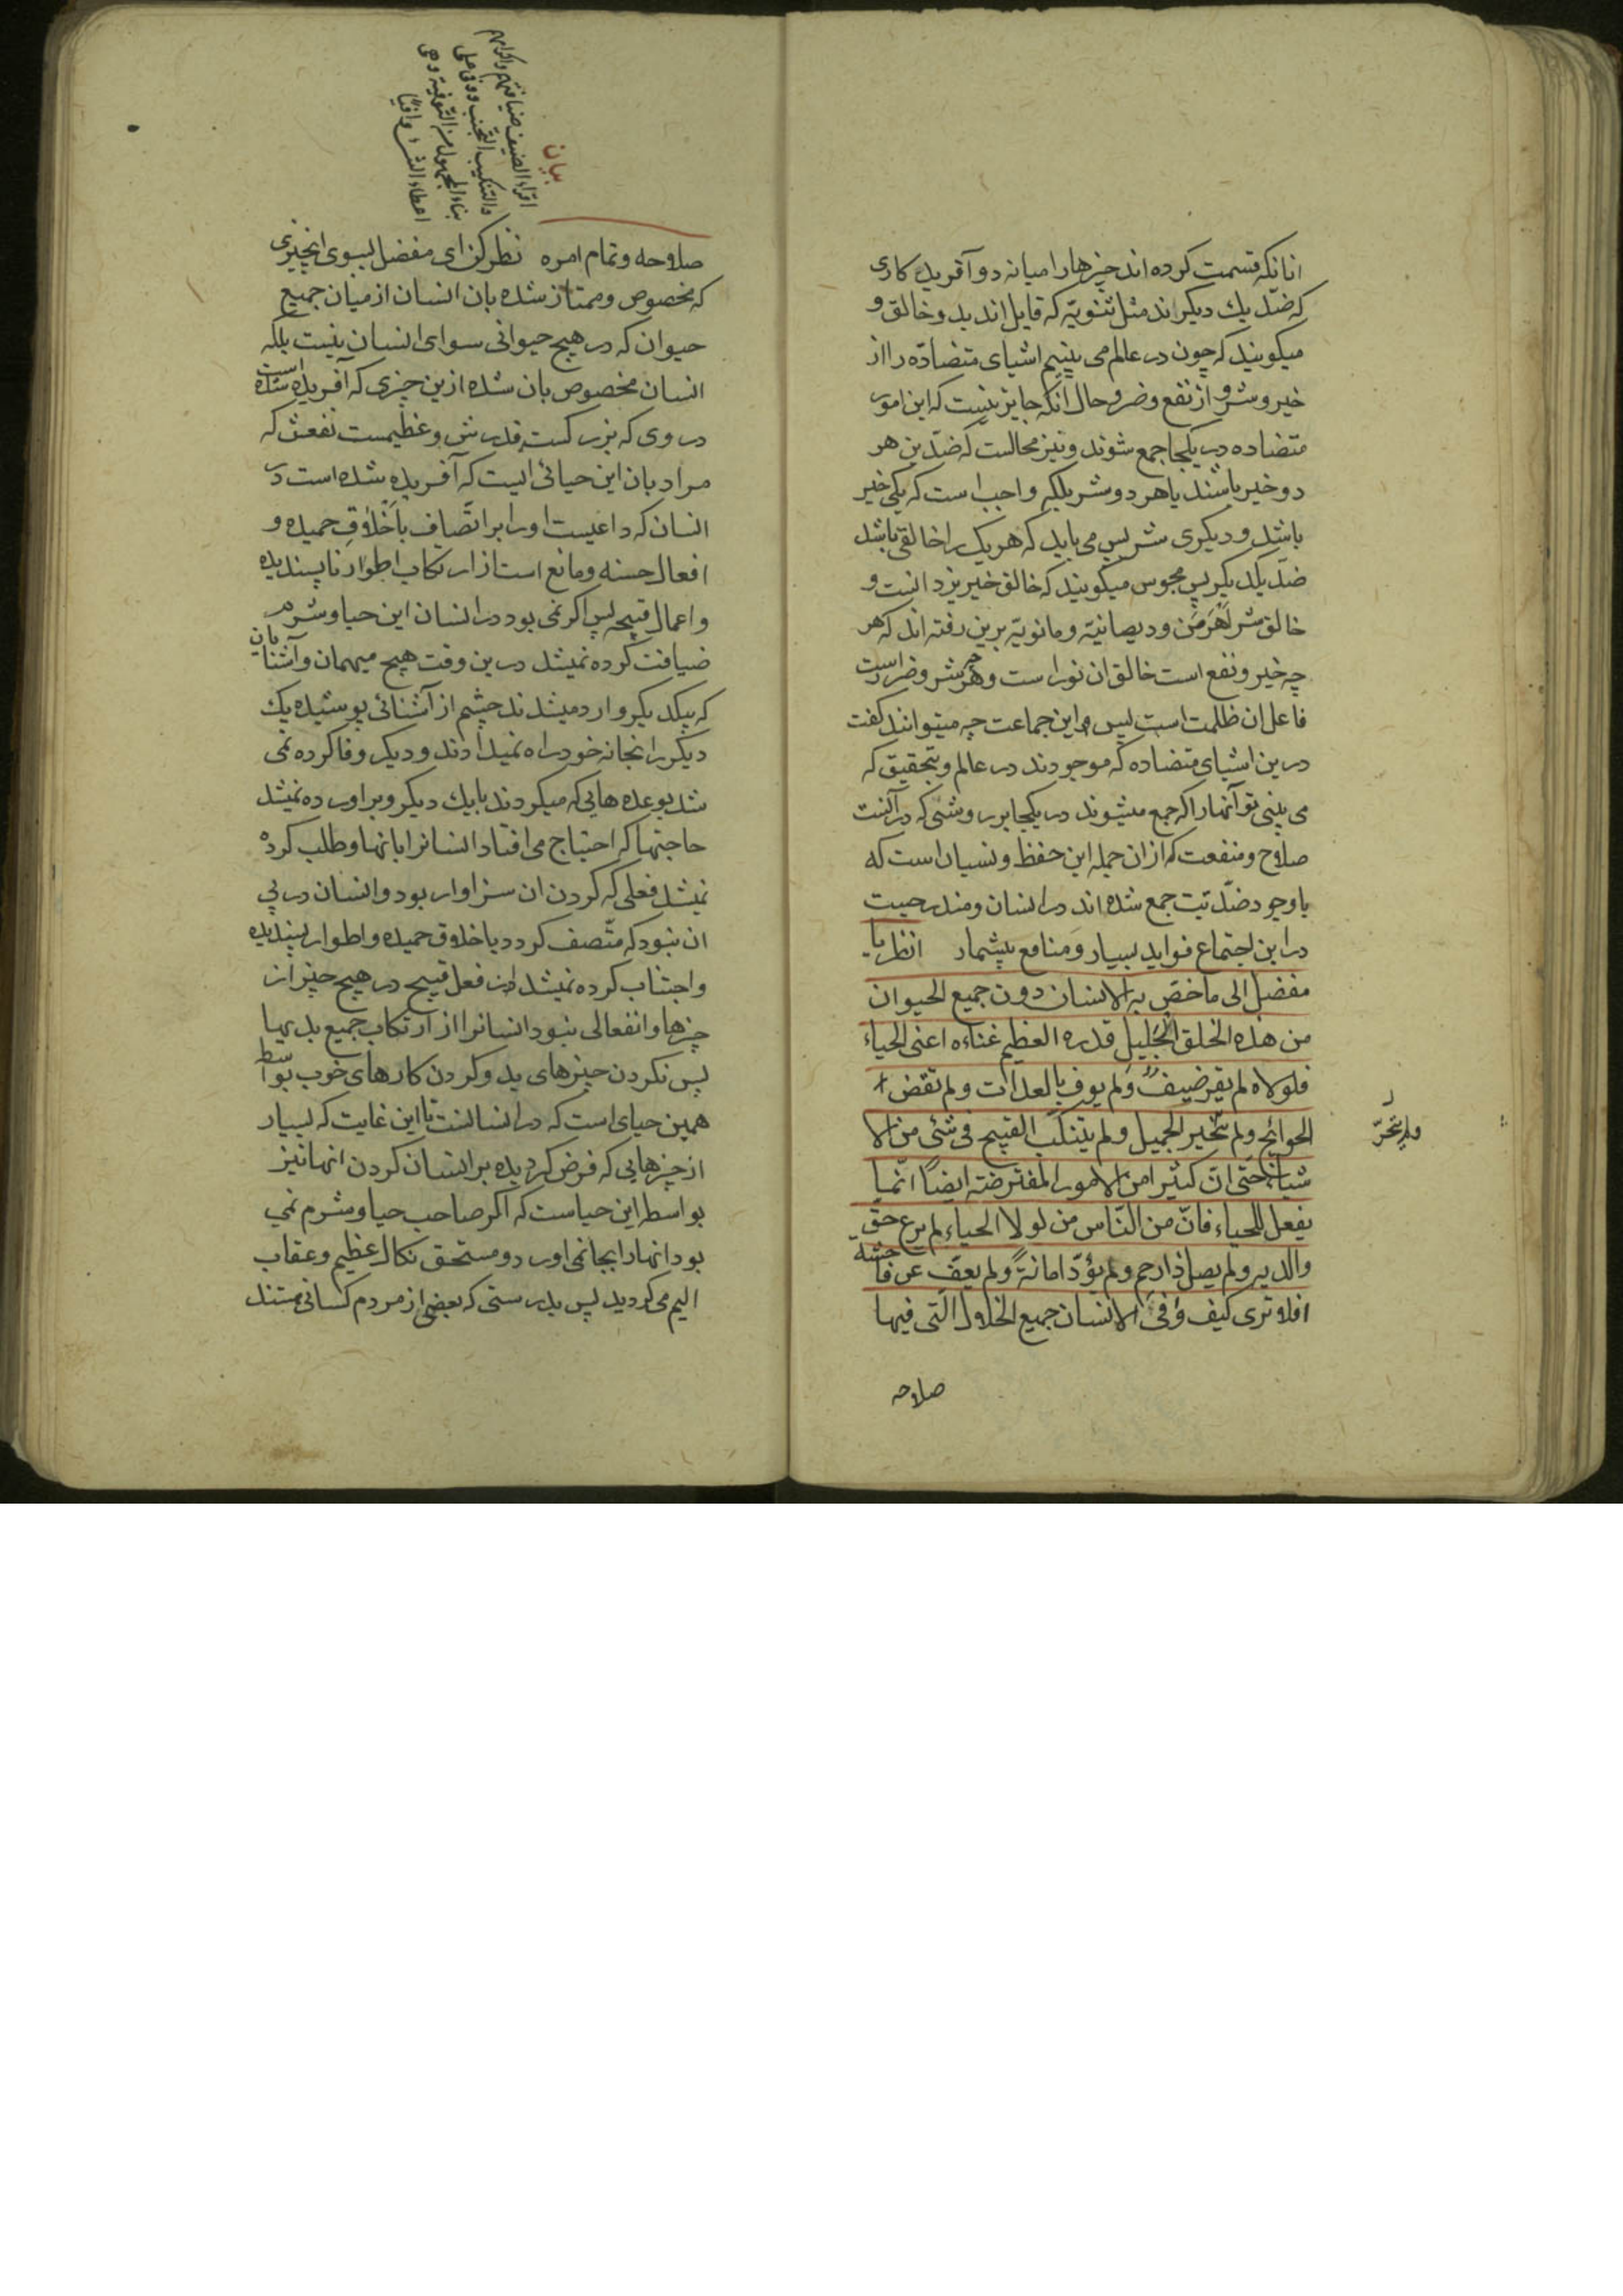 انانکه قسمت کرده اند چیزها را میانه دو آفریدکاری
که ضد یك دیکراند مثل ثنویّه که قایل اند بدو خالق و
میکویند که چون در عالم می بینیم اشیای متضادّه را از
خیر و شر و از نفع و ضر و حال انکه جایز نیست که این امور
متضاده در یکجا جمع شوند و نیز محالست که ضدین هر
دو خیر باشند یا هر دو شر بلکه واجب است که یکی خیر
باشد و دیکری شر پس می باید که هر یک را خالقی باشد
ضد یکدیکر پس مجوس میکویند که خالق خیر یزدانست و
خالق شر اَهْرَمَن و دیصانیّه و مانویّه برین رفته اند که هر
چه خیر و نفع است خالق ان نور است و هر چه شر و ضر است
فاعل ان ظلمت است پس این جماعت چه میتوانند کفت
درین اشیای متضاده که موجودند در عالم و بتحقیق که
می بینی تو آنها را که جمع میشوند در یکجا بر روشی که در آنست
صلاح و منفعت که از ان جمله این حفظ و نسیان است که
با وجود ضدّیّت جمع شده اند در انسان و مندرجست
در این اجتماع فواید بسیار و منافع بیشمار انظر یا
مفضل الی ما خصّ به الانسان دون جمیع الحیوان
من هذه الخلق الجَلیلِ قدره العظیم غناءه اعنی الحیاء
فلولاه لم یقر ضیفٌ وَلم یوف بالعداتِ و لم تقض ا
لحوائج و لم یتخیر الجمیل و لم یتنکّب القبیح فی شئی من الا
شیاء حتی انّ کثیرا من الامور المفترضته ایضًا انّما
یفعل للحیاء فانّ من النّاس من لو لا الحیاء لم یرع حقّ
والدیه و لم یصل ذا رحم و لم یؤدّ امانةً و لم یعفّ عن فاحشه
افلا تری کیف وُفی الانسان جمیع الخلال التی فیها
صلاحه
ولم یتحرّ
بیان
اقراء الضیف ضیافتهم و اکرامهم
والتنکیب التجنب و وفی علی
بناء المجهول من التوفیة و هی
اعطاء الشیء وافیًا
صلاحه و تمام امره نظر کن ای مفضل بسوی انچیزی
که مخصوص و ممتاز شده بان انسان از میان جمیع
حیوان که در هیچ حیوانی سوای انسان نیست بلکه
انسان مخصوص بان شده ازین چیزی که آفریده شده است
در وی که بزرکست قدرش و عظیمست نفعش که
مراد بان این حیائی است که آفریده شده است در
انسان که داعیست او را بر اتّصاف باَخلاقِ حمیده و
افعال حسنه و مانع است از ارتکاب اطوار ناپسندیده
و اعمال قبیحه پس اکر نمی بود در انسان این حیا و شرم
ضیافت کرده نمیشد درین وقت هیچ میهمان و آشنایان
که بیکدیکر وارد میشدند چشم از آشنائی پوشیده یك
دیکر را بخانه خود راه نمیدادند و دیکر وفا کرده نمی
شد بوعده هایی که میکردند با یك دیکر و براورده نمیشد
حاجتها که احتیاج می افتاد انسانرا بانها و طلب کرده
نمیشد فعلی که کردن ان سزاوار بود و انسان در پی
ان نبود که متّصف کردد باخلاق حمیده و اطوار پسندیده
و اجتناب کرده نمیشد از فعل قبیح در هیچ چیز از
چیزها و انفعالی نبود انسانرا از ارتکاب جمیع بدیها
پس نکردن چیزهای بد و کردن کارهای خوب بواسطه
همین حیای است که در انسانست تا این غایت که بسیار
از چیزهایی که فرض کردیده بر انسان کردن انها نیز
بواسطه این حیاست که اکر صاحب حیا و شرم نمی
بود انها را بجا نمی اورد و مستحق نکال عظیم و عقاب
الیم می کردید پس بدرستی که بعضی از مردم کسانی هستند